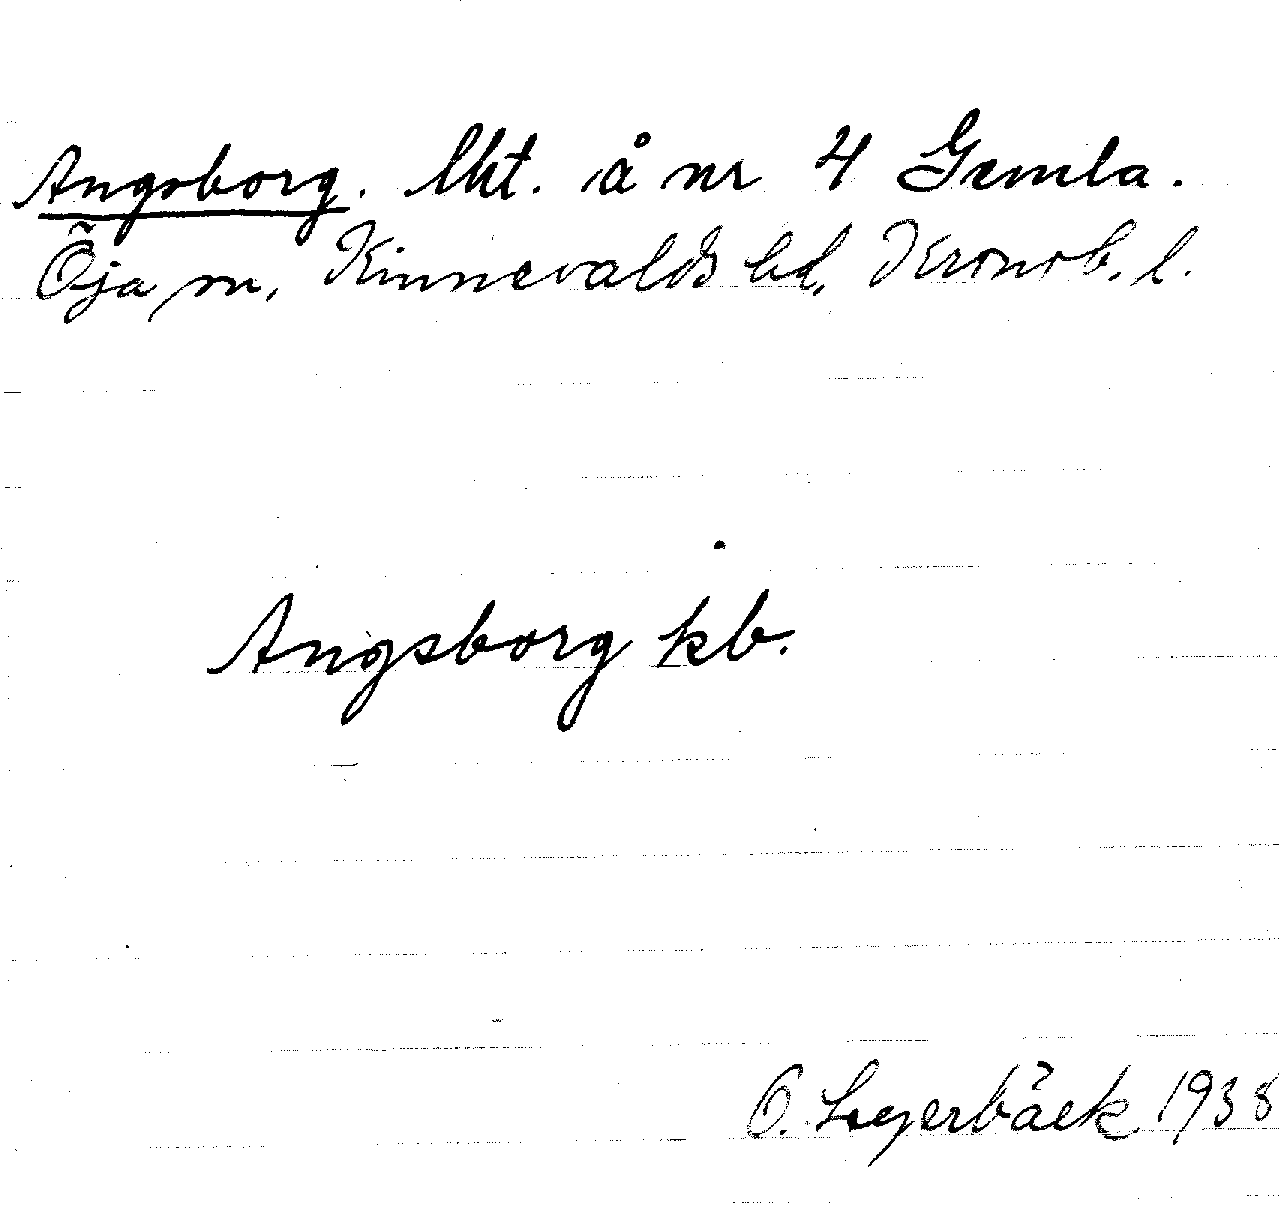 Angsborg. lht. å nr 4 Gemla.
Öja sn, Kinnevalds hd, Kronob. l.
Angsborg kb.
O. Lagerbäck 1938